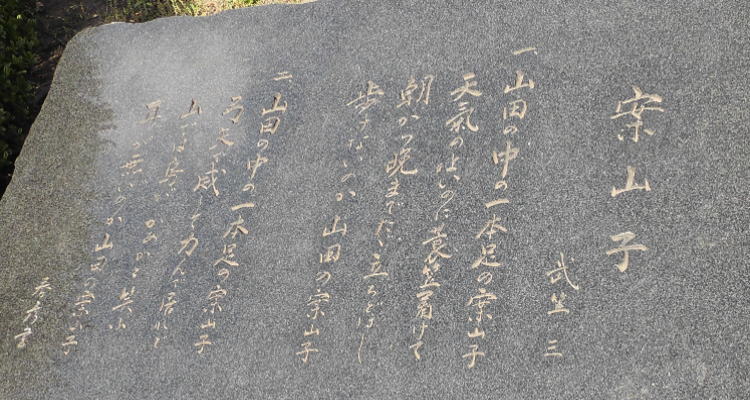 案山子
武笠 三
一 山田の中の一本足の案山子
天気の好いのに蓑笠着けて
朝から晩までたゞ立ちどほし
歩けないのか山田の案山子
二 山田の中の一本足の案山子
弓矢で威して力んで居れど
山では烏がかあかと笑ふ
耳が無いのか山田の案山子